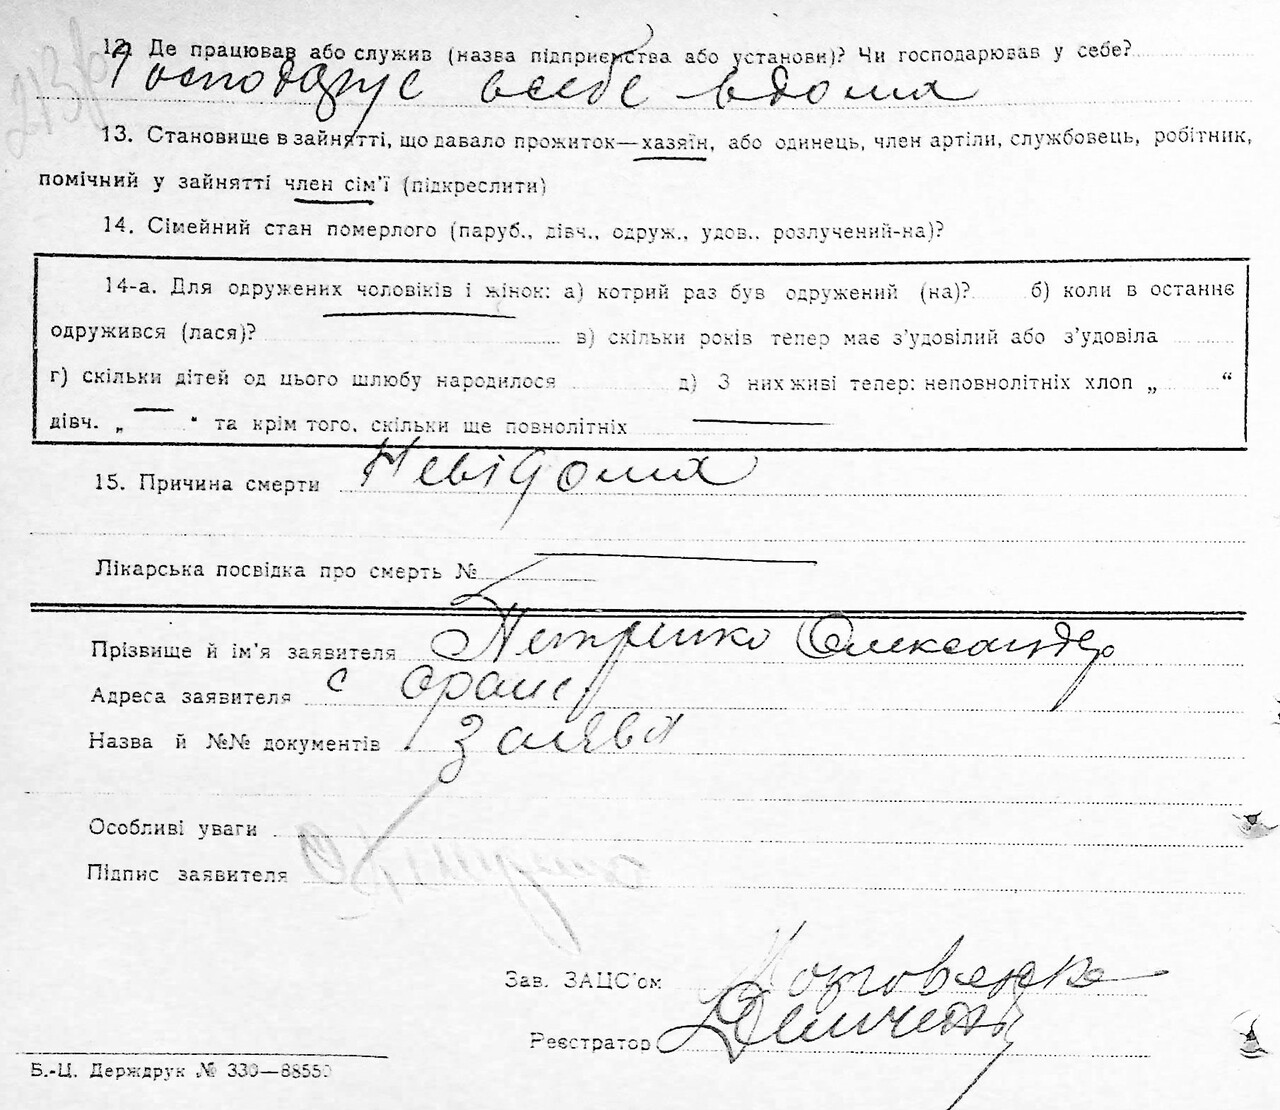 12. Де працював або служив (назва підприємства або установи)? Чи господарював у себе?
Господарує всебе вдома
13. Становище в зайнятті, що давало прожиток—хазяїн, або одинець, член артіли, службовець, робітник,
помічний у зайнятті член сім'ї (підкреслити)
14. Сімейний стан померлого (паруб., дівч., одруж., удов., розлучений-на)?
14-а. Для одружених чоловіків і жінок: а) котрий раз був одружений (на)? б) коли в останнє
одружився (лася)? в) скільки років тепер має з'удовілий або з'удовіла
г) скільки дітей од цього шлюбу народилося д) З них живі тепер: неповнолітніх хлоп „ “
дівч. „ “ та крім того, скільки ще повнолітніх
15. Причина смерти Невідома
Лікарська посвідка про смерть №
Прізвище й ім'я заявителя Петренко Олександер
Адреса заявителя с
Назва й №№ документів Заява
Особливі уваги
Підпис заявителя
Зав. ЗАЦС'ом
Реєстратор
Б.-Ц. Держдрук № 330—88550